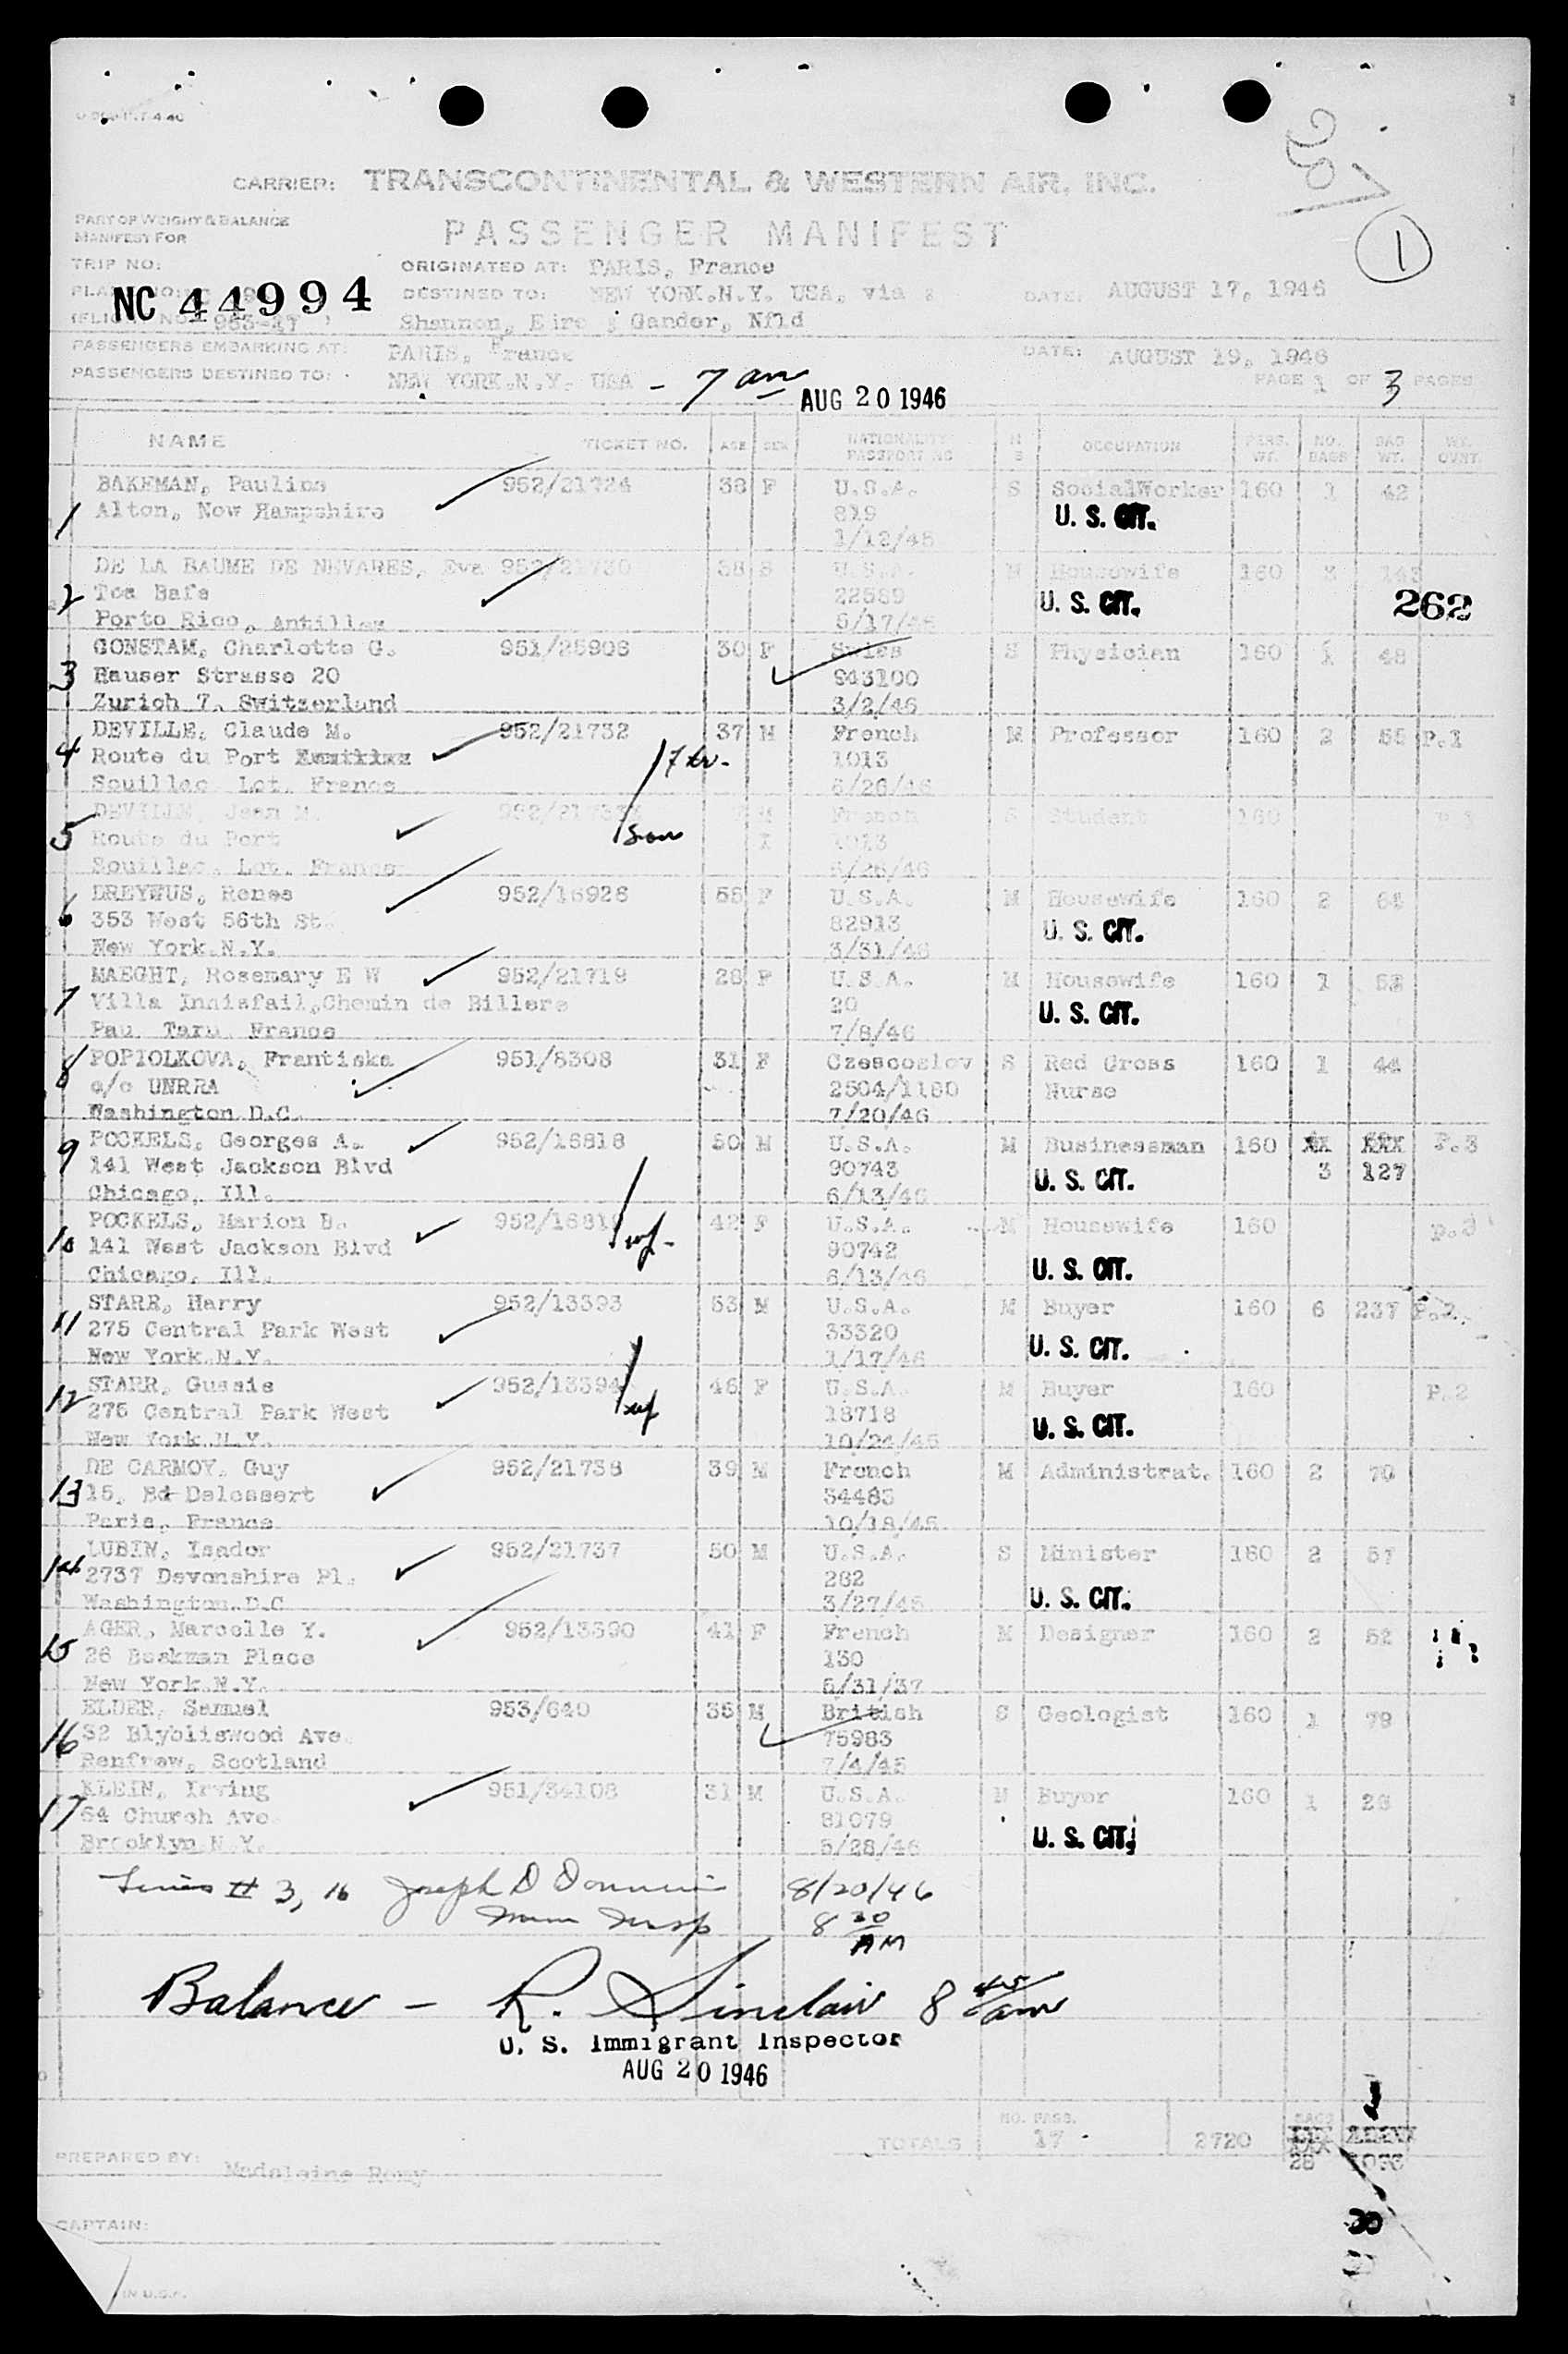 CARRIER: TRANSCONTINENTAL & WESTERN AIR, INC.
PART OF WEIGHT & BALANCE
MANIFEST FOR
PASSENGER MANIFEST
1
TRIP NO:
ORIGINATED AT: PARIS, France
NC 44994
DESTINED TO: NEW YORK.N.Y. USA, via
DATE: AUGUST 17, 1946
Shannon, Eire Gander, Nfld
PASSENGERS EMBARKING AT: PARIS, France
DATE: AUGUST 19, 1946
PASSENGERS DESTINED TO: NEW YORK.N.Y. USA - 7 am AUG 20 1946
PAGE 1 OF 3 PAGES
NAME TICKET NO. AGE SEX NATIONALITY PASSPORT NO OCCUPATION PERS. WT. NO. BAGS BAG WT.
1 BAKEMAN, Pauline 952/21724 38 F U.S.A. S SocialWorker 160 1 42
Alton, New Hampshire 819 U. S. CIT.
1/12/45
2 DE LA BAUME DE NEVARES, Eva U.S.A. Housewife 160 3 143
Toa Bafa 22589 U. S. CIT. 262
Porto Rico, Antilles 5/17/46
3 GONSTAM, Charlotte G. 951/25908 30 F Swiss S Physician 160 1 48
Hauser Strasse 20 943100
Zurich 7, Switzerland 3/2/46
4 DEVILLE, Claude M. 952/21732 37 M French M Professor 160 2 55 P.1
Route du Port 1013
Souillac Lot. France 6/26/46
5 DEVILLE, Jean M. French S Student 160 P.1
Route du Port son 1013
Souillac, Lot. France 6/26/46
6 DREYFUS, Renee 952/16928 55 F U.S.A. M Housewife 160 2 64
353 West 56th St. 82913 U. S. CIT.
New York.N.Y. 3/31/46
7 MAEGHT, Rosemary E W 952/21719 28 F U.S.A. M Housewife 160 1 52
Villa Innisfail,Chemin de Billere 20 U. S. CIT.
Pau. Taru. France 7/8/46
8 POPIOLKOVA, Frantiska 951/8308 31 F Czescoslov S Red Cross 160 1 44
c/o UNRRA 2504/1180 Nurse
Washington.D.C. 7/20/46
9 POCKELS, Georges A. 952/16818 50 M U.S.A. M Businessman 160 P.3
141 West Jackson Blvd 90743 U. S. CIT. 3 127
Chicago, Ill. 6/13/46
10 POCKELS, Marion B. 952/16819 42 F U.S.A. M Housewife 160 P.3
141 West Jackson Blvd wf- 90742
Chicago, Ill. 6/13/46 U. S. CIT.
11 STARR, Harry 952/13393 53 M U.S.A. M Buyer 160 6 237 P.2
275 Central Park West 33320 U. S. CIT.
New York.N.Y. 1/17/46
12 STARR, Gussie 952/13394 46 F U.S.A. M Buyer 160 P.2
275 Central Park West wf 18718 U. S. CIT.
New York.N.Y. 10/24/45
13 DE CARMOY, Guy 952/21738 39 M French M Administrat. 160 2 70
15, Bd Delessert 34483
Paris, France 10/18/45
14 LUBIN, Isador 952/21737 50 M U.S.A. S Minister 160 2 57
2737 Devonshire Pl. 262 U. S. CIT.
Washington.D.C 3/27/45
15 AGER, Marcelle Y. 952/13390 41 F French M Designer 160 2 52
26 Beekman Place 130
New York.N.Y. 5/31/37
16 ELDER, Samuel 953/640 35 M British S Geologist 160 1 79
32 Blybliswood Ave. 75983
Renfrew, Scotland 7/4/45
17 KLEIN, Irving 951/34108 31 M U.S.A. M Buyer 160 1 26
54 Church Ave 81079 U. S. CIT.
Brooklyn.N.Y. 5/28/46
# 3, 16 Joseph D 8/20/46
Insp 8 30 AM
Balance - R. Sinclair 8 45 am
U. S. Immigrant Inspector
AUG 20 1946
TOTALS NO. PASS. 17 2720 BAGS 28
PREPARED BY: Madeleine Remy
CAPTAIN:
IN U.S.A.